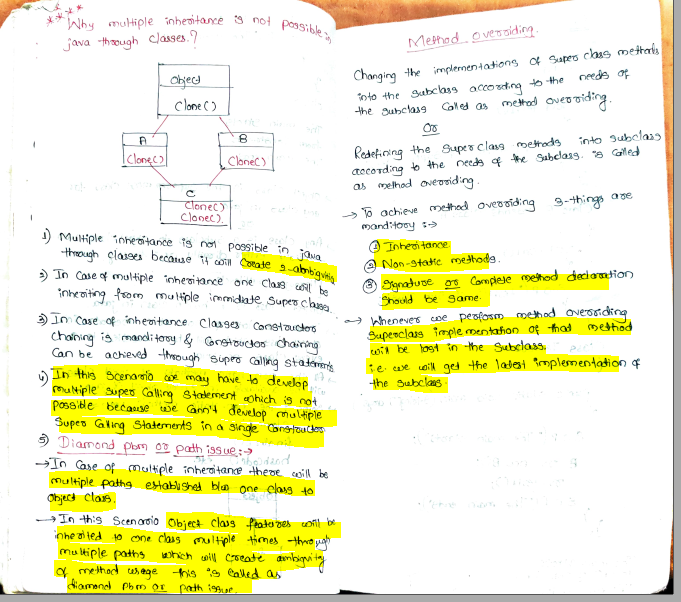 Why multiple inheritance is not possible in
java through classes.?
Object
Clone()
A
Clone()
B
Clone()
C
Clone()
Clone().
1) Multiple inheritance is not possible in java
through classes because it will Create 2-ambiguity
2) In Case of multiple inheritance one Class will be
inheriting from multiple immidiate Super Class
3) In Case of inheritance Classes Constructor
Chaining is manditory & Constructor Chaining
Can be achieved through super Calling Statements
4) In this Scenario we may have to develop
multiple super Calling Statement which is not
Possible because we Cann't develop multiple
Super Calling Statements in a Single Constructor.
5) Diamond pbm or path issue :→
→ In Case of multiple inheritance there will be
multiple paths established b/w one Class to
Object Class.
→ In this Scenario Object Class features will be
inherited to one class multiple times through
multiple paths which will Create ambiguity
of method usage this is Called as
diamond Pbm or path issue.
Method overriding.
Changing the implementations of Super class methods
into the subclass according to the needs of
the subclass Called as method overriding.
Or
Redefining the Super Class methods into Subclass
according to the needs of the subclass. is Called
as method overriding.
→ To achieve method overriding 3-things are
manditory :→
① Inheritance
② Non-static methods.
③ Signature or Complete method declaration
Should be Same.
→ Whenever we perform method overriding
Superclass implementation of that method
will be lost in the Subclass.
i.e. we will get the latest implementation of
the subclass.